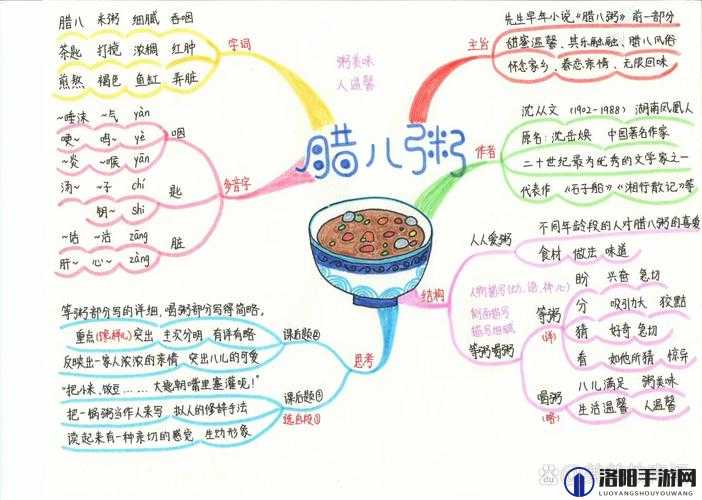 腊八粥
粥美味
人温馨
字词
腊八 末粥 细腻 吞咽
茶匙 打搅 浓稠 红肿
煎熬 褐色 鱼缸 弄脏
多音字
咽
~唾沫 ~气 yàn
哽~ 呜~ yè
~炎 ~喉 yān
匙
汤~ ~子 chí
钥~ shi
脏
~话 ~活 zāng
肝~ 心~ zàng
主旨
先生早年小说《腊八粥》前一部分
甜蜜温馨、其乐融融、腊八风俗
怀念家乡、眷恋亲情、无限回味
作者
沈从文 (1902-1988) 湖南凤凰人
原名:沈岳焕 中国著名作家
二十世纪最为优秀的文学家之一
代表作 《石子船》《湘行散记》等
结构
人人爱粥
不同年龄段的人对腊八粥的喜爱
食材 做法 味道
等粥喝粥
等粥
(详)
盼 兴奋 急切
分 吸引力大 狡黠
猜 好奇 急切
看 如他所猜 惊异
喝粥
(略)
八儿满足 粥美味
生活温馨 人温馨
思考
等粥部分写的详细,喝粥部分写得简略。
突出 主次分明 有详有略
反映出一家人浓浓的亲情 突出八儿的可爱
课后题
"把小米,饭豆……大匙朝嘴里塞灌呢!"
把一锅粥当作人来写 拟人的修辞手法
读起来有一种亲切的感觉 生动形象
课后题
洛阳手游网
LUOYANGSHOUYOUWANG